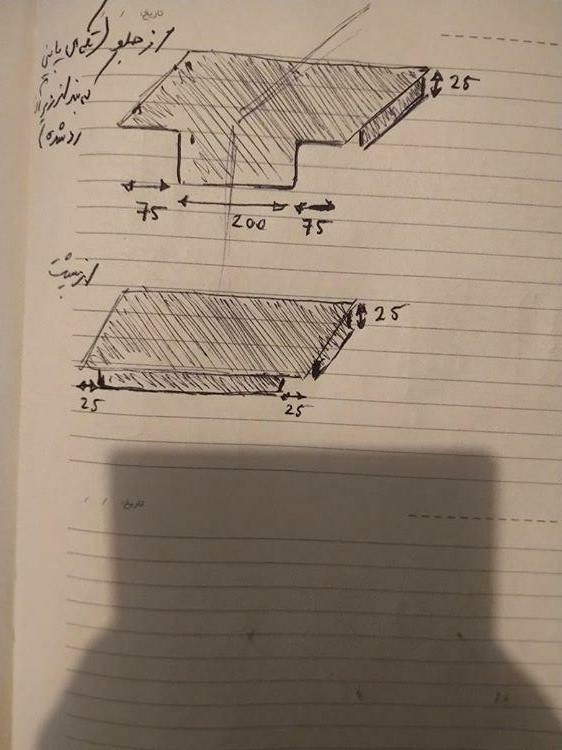 تاریخ: / /
از جلو (تکه‌ی پایینی
که بند از زیر آن
رد شده)
25
75
200
75
از پشت
25
25
25
تاریخ: / /